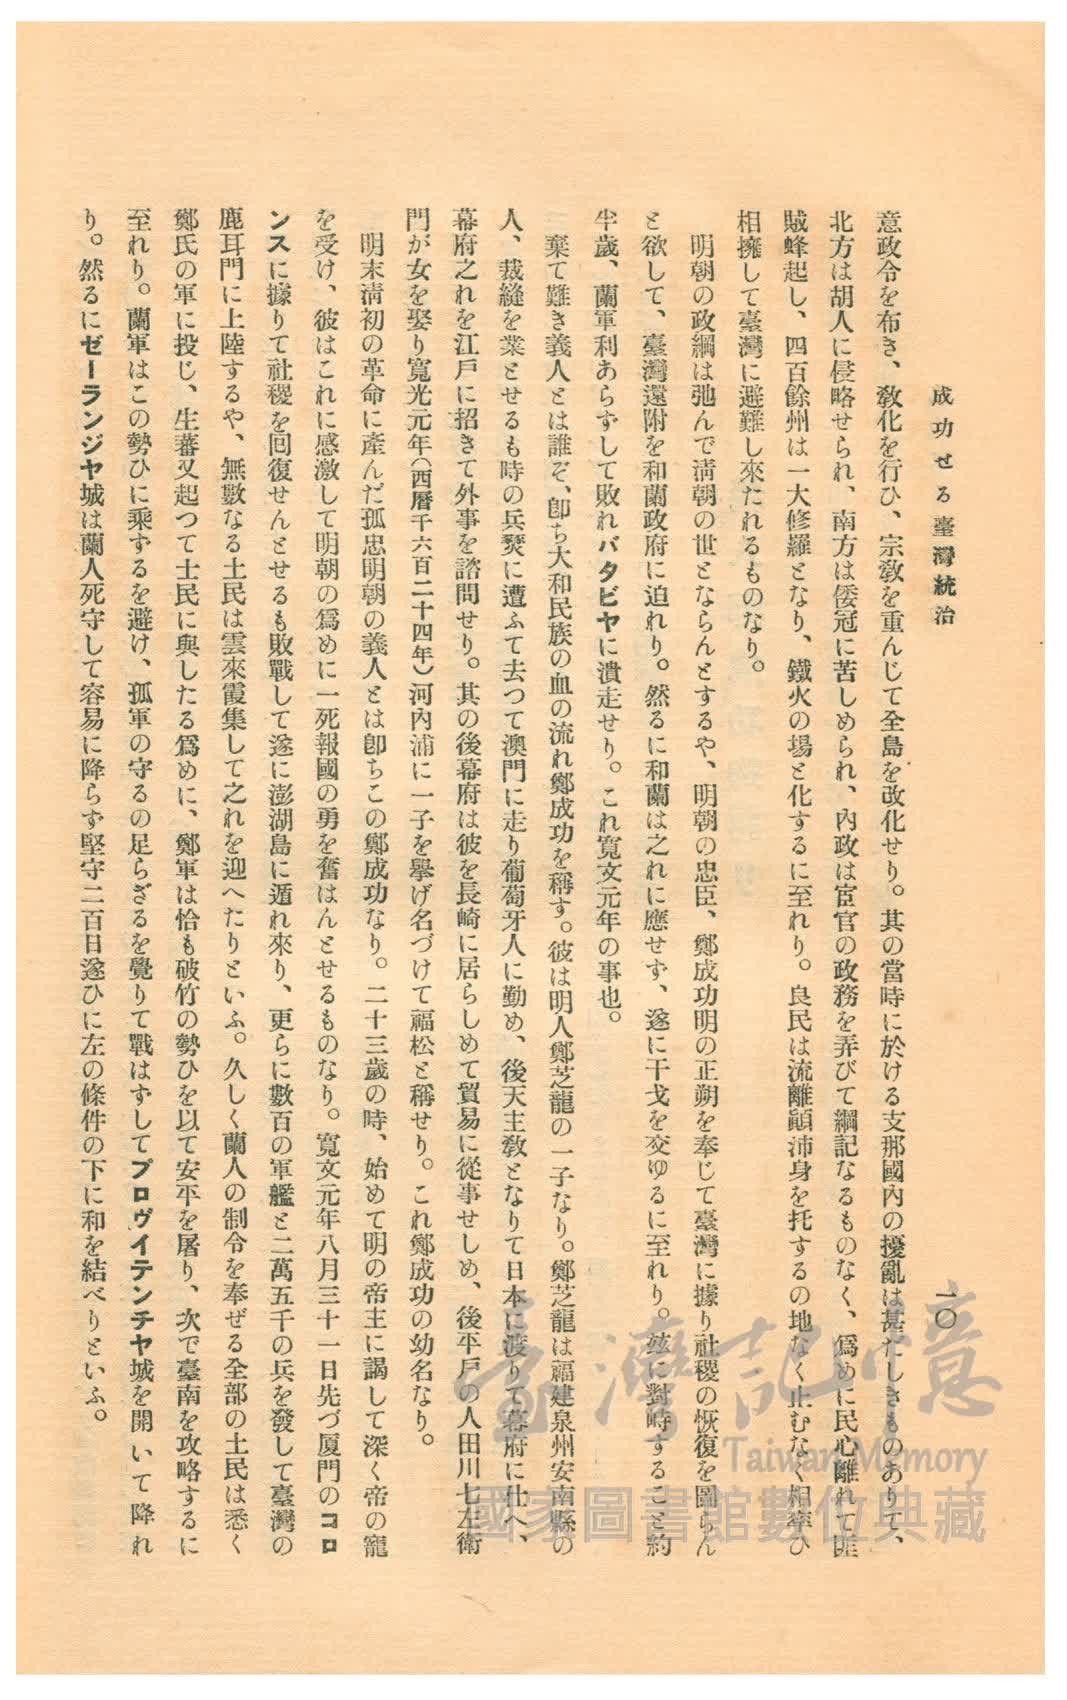 成功せる臺灣統治
一〇
意政令を布き、敎化を行ひ、宗敎を重んじて全島を改化せり。其の當時に於ける支那國內の擾亂は甚だしきものありて、
北方は胡人に侵略せられ、南方は倭冠に苦しめられ、內政は宦官の政務を弄びて綱記なるものなく、爲めに民心離れて匪
賊蜂起し、四百餘州は一大修羅となり、鐵火の場と化するに至れり。良民は流離顚沛身を托するの地なく止むなく相率ひ
相擁して臺灣に避難し來たれるものなり。
明朝の政綱は弛んで淸朝の世とならんとするや、明朝の忠臣、鄭成功明の正朔を奉じて臺灣に據り社稷の恢復を圖らん
と欲して、臺灣還附を和蘭政府に迫れり。然るに和蘭は之れに應せず、遂に干戈を交ゆるに至れり。玆に對峙すること約
半歲、蘭軍利あらずして敗れバタビヤに潰走せり。これ寬文元年の事也。
棄て難き義人とは誰ぞ、卽ち大和民族の血の流れ鄭成功を稱す。彼は明人鄭芝龍の一子なり。鄭芝龍は福建泉州安南縣の
人、裁縫を業とせるも時の兵燹に遭ふて去つて澳門に走り葡萄牙人に勤め、後天主敎となりて日本に渡りて幕府に仕へ、
幕府之れを江戶に招きて外事を諮問せり。其の後幕府は彼を長崎に居らしめて貿易に從事せしめ、後平戶の人田川七左衛
門が女を娶り寬光元年(西曆千六百二十四年)河內浦に一子を擧げ名づけて福松と稱せり。これ鄭成功の幼名なり。
明末淸初の革命に產んだ孤忠明朝の義人とは卽ちこの鄭成功なり。二十三歲の時、始めて明の帝主に謁して深く帝の寵
を受け、彼はこれに感激して明朝の爲めに一死報國の勇を奮はんとせるものなり。寬文元年八月三十一日先づ厦門のコロ
ンスに據りて社稷を回復せんとせるも敗戰して遂に澎湖島に遁れ來り、更らに數百の軍艦と二萬五千の兵を發して臺灣の
鹿耳門に上陸するや、無數なる土民は雲來霞集して之れを迎へたりといふ。久しく蘭人の制令を奉ぜる全部の土民は悉く
鄭氏の軍に投じ、生蕃又起つて士民に與したる爲めに、鄭軍は恰も破竹の勢ひを以て安平を屠り、次で臺南を攻略するに
至れり。蘭軍はこの勢ひに乘ずるを避け、孤軍の守るの足らざるを覺りて戰はずしてプロヴイテンチヤ城を開いて降れ
り。然るにゼーランジヤ城は蘭人死守して容易に降らず堅守二百日遂ひに左の條件の下に和を結べりといふ。
臺灣記憶
Taiwan Memory
國家圖書館數位典藏